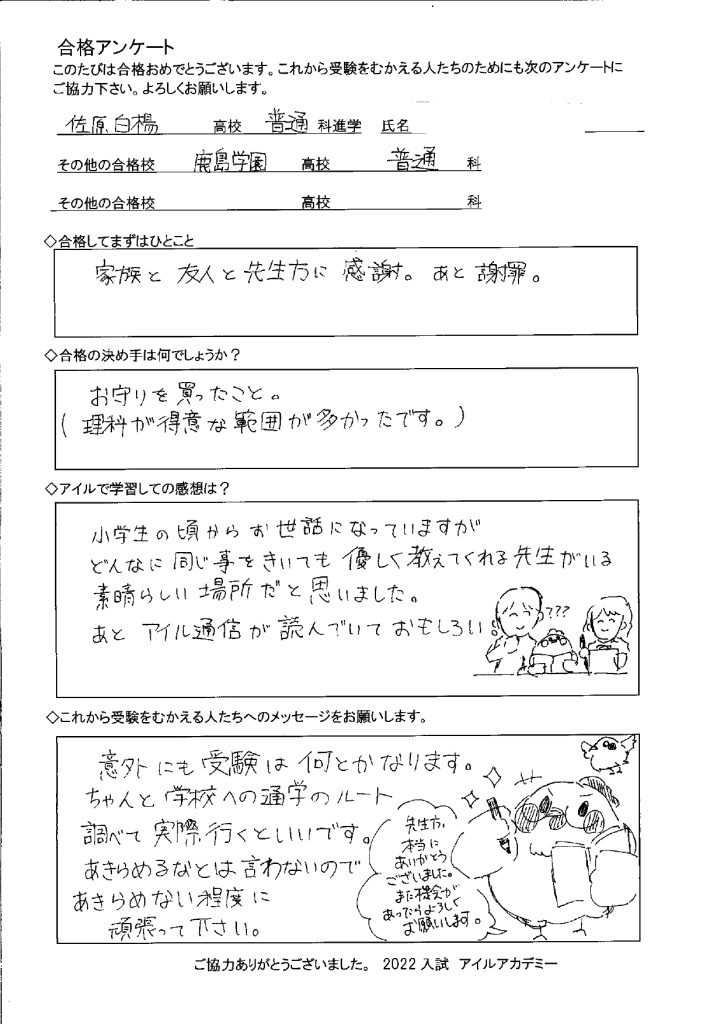 合格アンケート
このたびは合格おめでとうございます。これから受験をむかえる人たちのためにも次のアンケートに
ご協力下さい。よろしくお願いします。
佐原白楊 高校 普通 科進学 氏名
その他の合格校 鹿島学園 高校 普通 科
その他の合格校 高校 科
◇合格してまずはひとこと
家族と 友人と 先生方に 感謝。 あと 謝罪。
◇合格の決め手は何でしょうか？
お守りを買ったこと。
(理科が得意な範囲が多かったです。)
◇アイルで学習しての感想は？
小学生の頃からお世話になっていますが
どんなに同じ事をきいても優しく教えてくれる先生がいる
素晴らしい場所だと思いました。
あと アイル通信が 読んでいて おもしろい。
???
◇これから受験をむかえる人たちへのメッセージをお願いします。
意外にも受験は何とかなります。
ちゃんと学校への通学のルート
調べて実際行くといいです。
あきらめるなとは言わないので
あきらめない程度に
頑張って下さい。
先生方、
本当に
ありがとう
ございました。
また機会が
あったらよろしく
お願いします。
ご協力ありがとうございました。 2022入試 アイルアカデミー